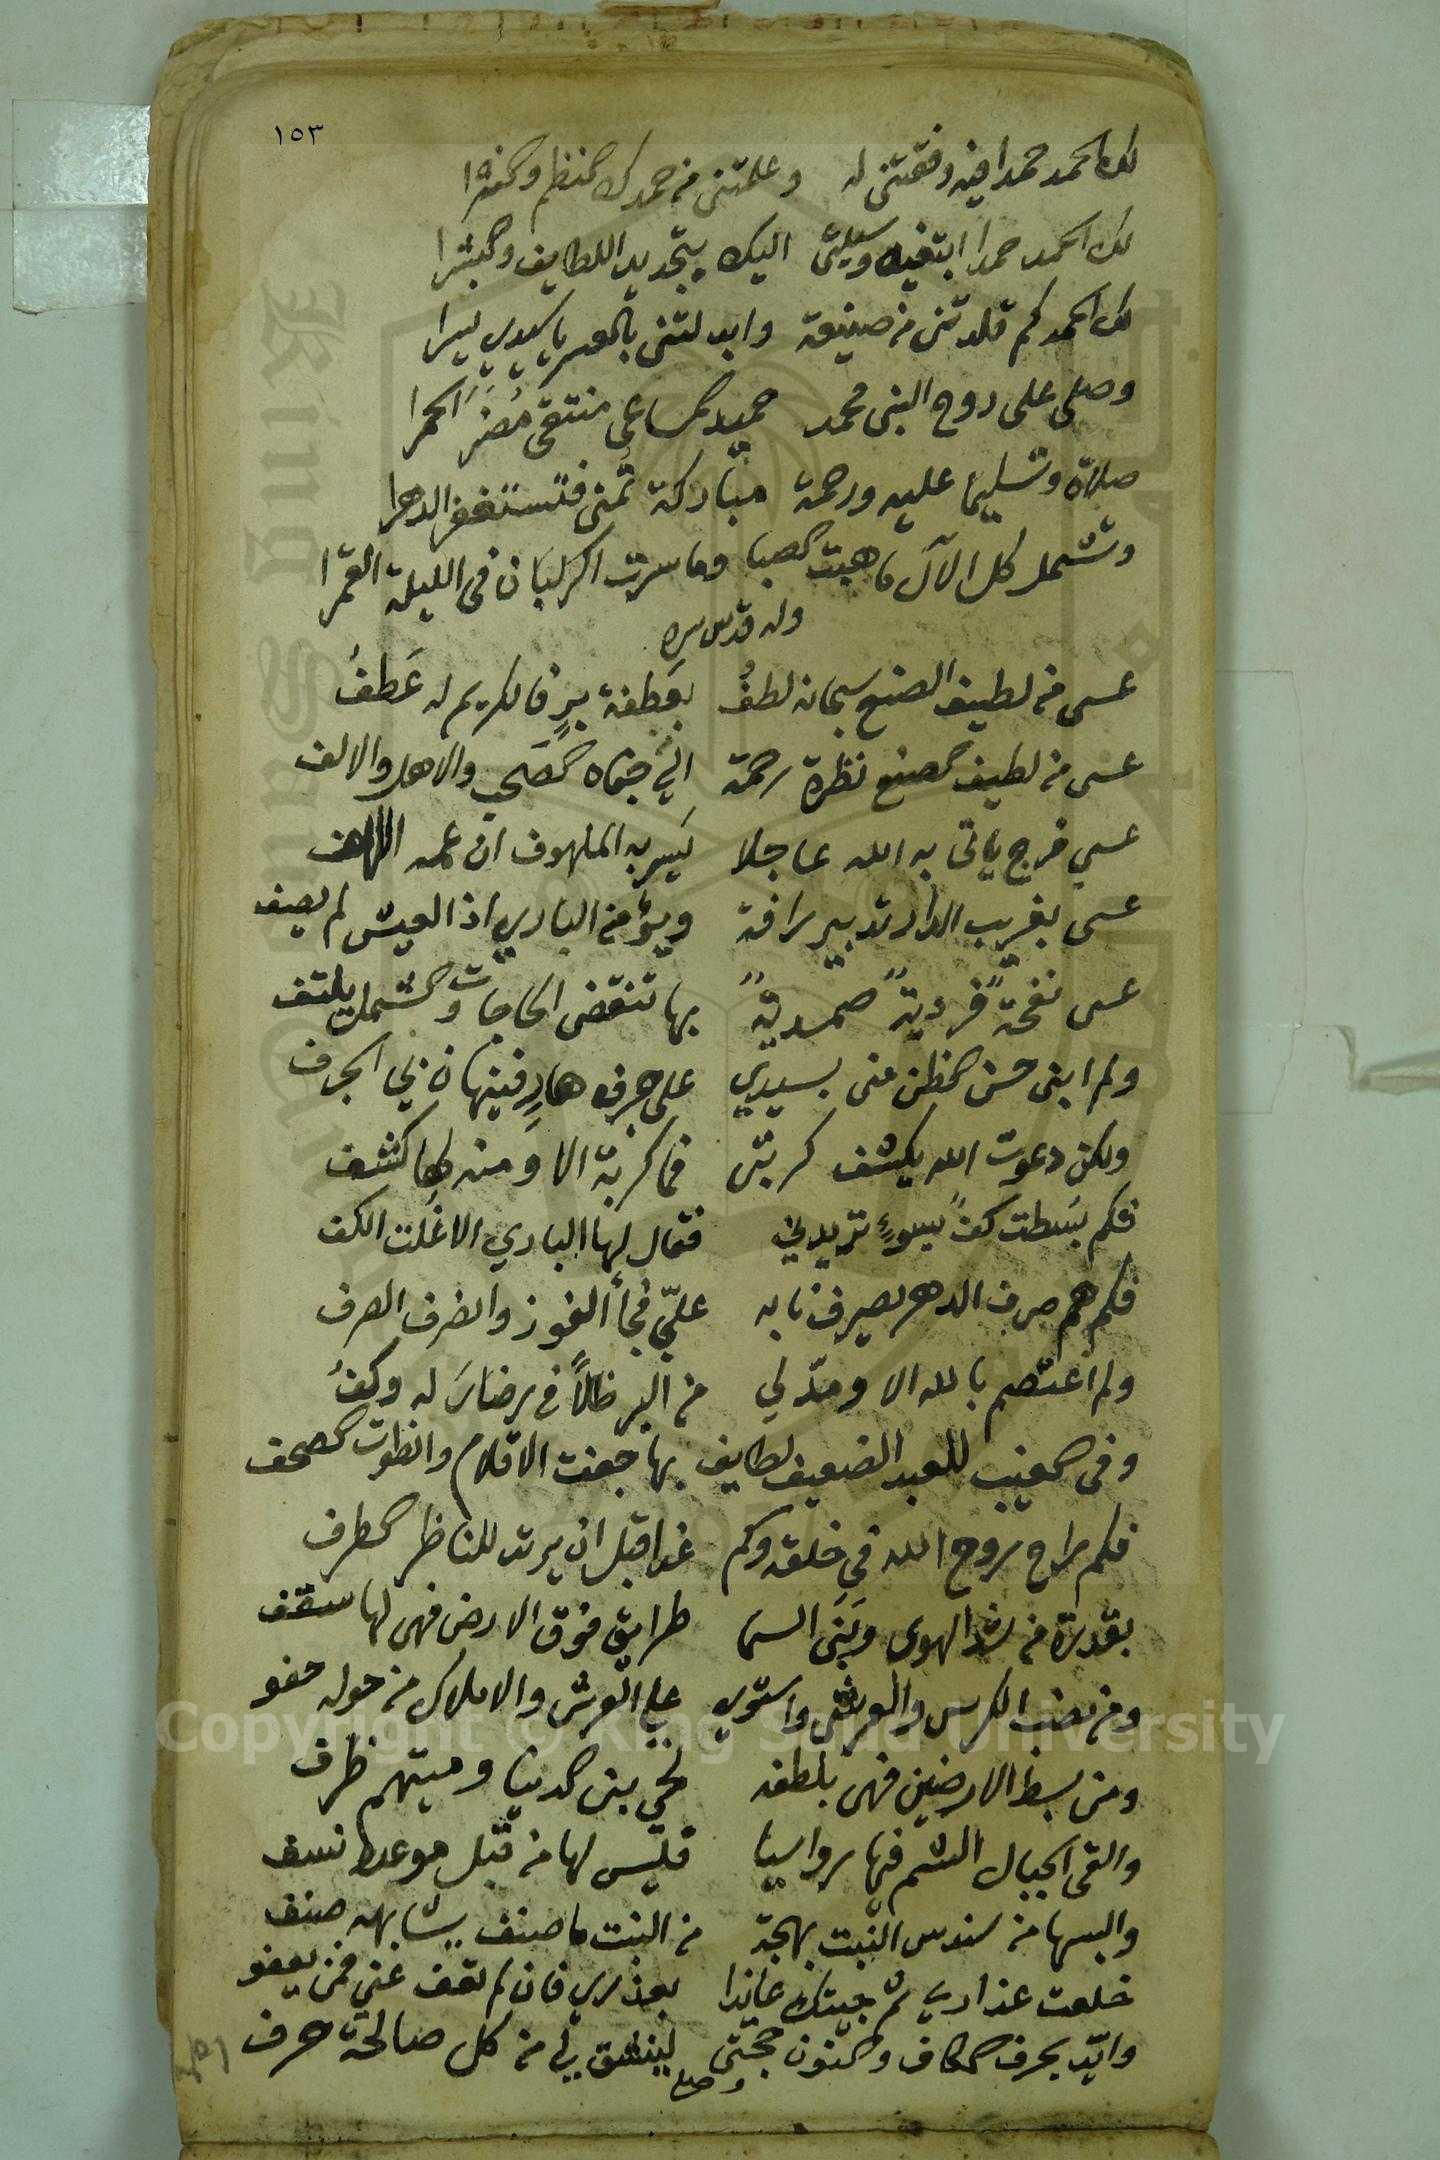 ١٥٣
لك الحمد حمدا فيه وفقتني له وعلمتني من حمدك النظم والنثرا
لك الحمد حمدا ابتغيه وسيلتي اليك بتجديد اللطايف والبشرا
لك الحمد كم قلدتني من صنيعة وابدلتني بالعسر يا سيدي يسرا
وصلى على روح النبي محمد حميد المساعي منتقى مُضَرَ الحمرا
صلاة وتسليما عليه ورحمة مباركة تُمنى فتستغفر الدهرا
وتشمل كل الآل ما هبت الصبا وما سرت الركبان في الليلة القمرا
وله قدس سره
عسى من لطيف الصنع سبحانه لطفُ بعطفة برٍ فالكريم له عَطفُ
عسى من لطيف الصنع نظرة رحمة الى جفاه الصَحب والاهل والالف
عسى فرج ياتى به الله عاجلا يَسِر به الملهوف ان عمه اللهف
عسى بغريب الدار تدبير رافة ويؤمن الباري اذا العيش لم يصف
عسى نفحةً فرديةً صمديةً بها تنقضى الحاجات والشمل يلتف
ولم ابنى حسن الظن منى بسيدي على جرف هارٍ فينهار بي الجرف
ولكن دعوت الله يكشف كربتى فما كربة الا ومنه لها كشف
فكم بسطت كفً بسوءٍ تريدني فقال لها الباري الا غُلت الكف
فكم هم صرف الدهر يصرف نابه عليّ فجأ الفوز وانصرف الصرف
ولم اعتصم بالله الا ومدّ لي من البر ظلاً في رضاَ له وكفُ
وفى الغيب للعبد الضعيف لطايف بها جفت الاقلام وانطوت الصحف
فكم راح روح الله في خلقه وكم غدا قبل ان يرتد للناظر الطرف
بقدرة من شد الهوى وبَنَى السما طرايق فوق الارض فهى لها سقف
ومن نصب الكرسى والعرش واستوى على العرش والاملاك من حوله حفو
ومن بسط الارضين فهى بلطفه لحي بنى الدنيا وميتهم ظرف
والقى الجبال الشم فيها رواسيا فليس لها من قبل موعدها نسف
والبسها من سندس النبت بهجة من النبت ما صنف يشابهه صنف
خلعت عذاري ثم جيتك عائذا بعذري فان لم تعف عني فمن يعفو
وايّد بحرف الكاف والنون حجتى لينطق لي من كل صالحة حرف
وصل